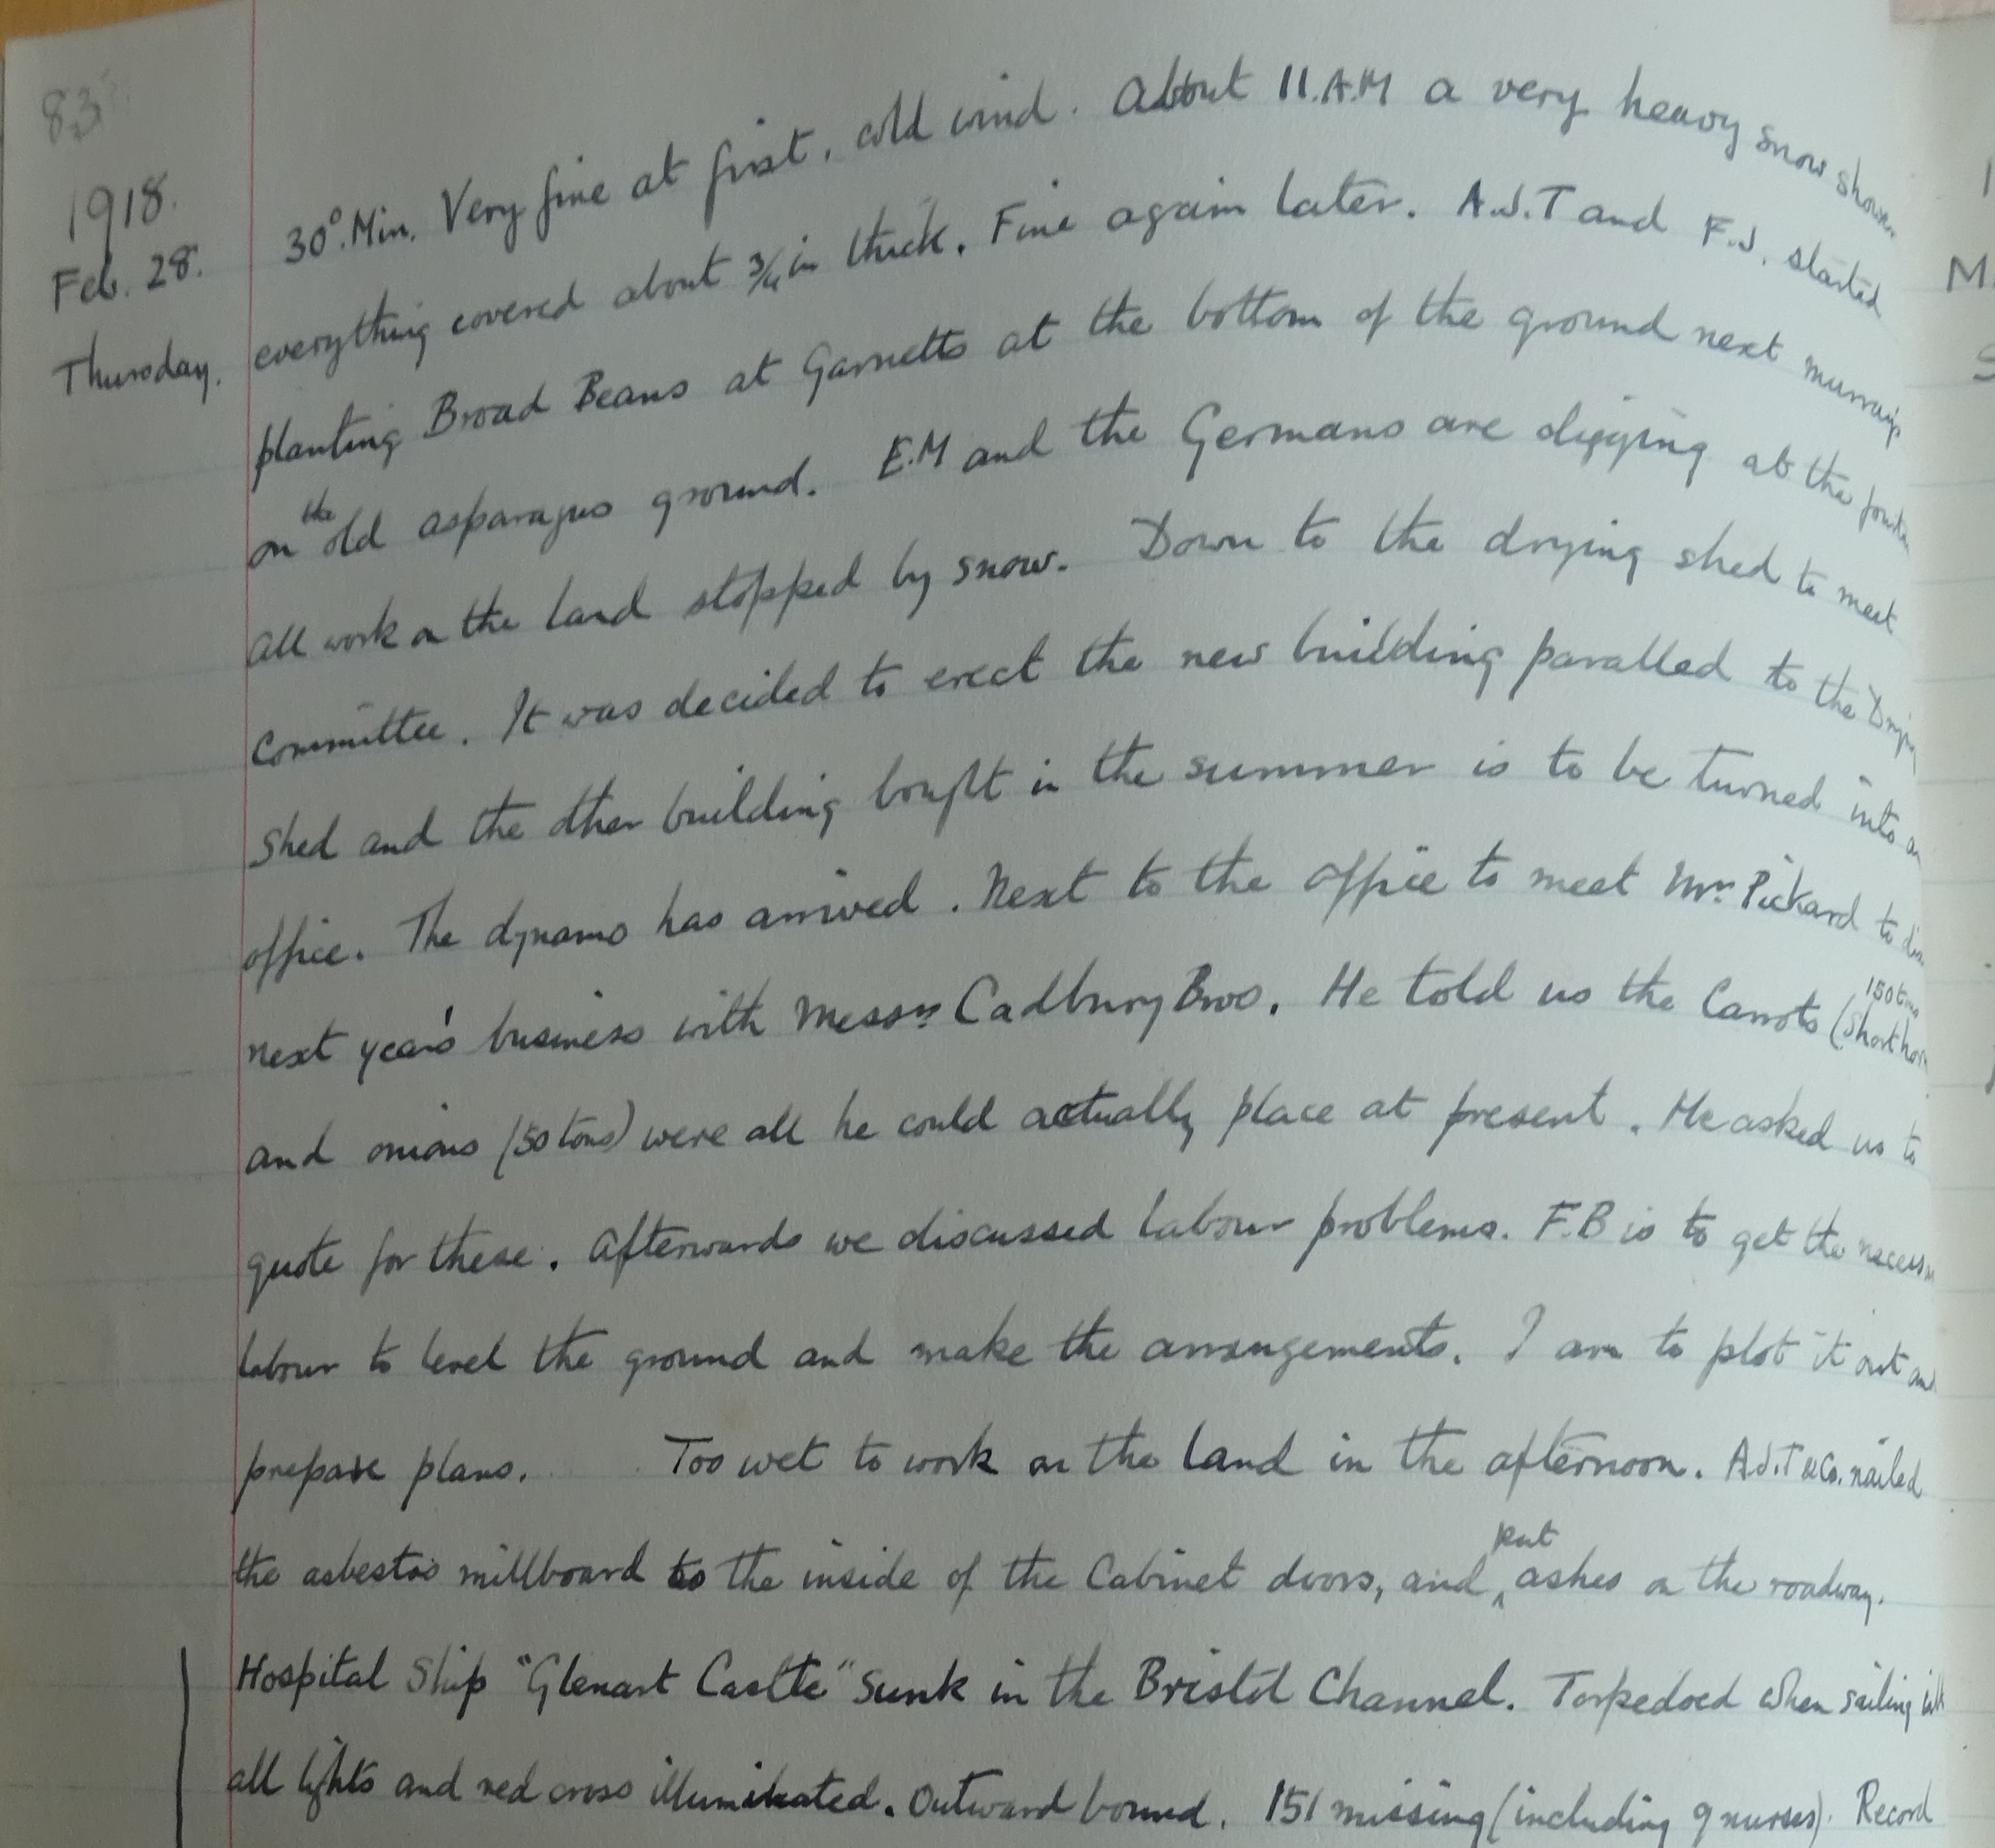 83
1918.
Feb. 28.
Thursday.
30°. Min. Very fine at first, cold wind. About 11.A.M a very heavy snow shower
everything covered about 3/4 in thick. Fine again later. A.J.T and F.J. started
planting Broad Beans at Garnetts at the bottom of the ground next
on the old asparagus ground. E.M and the Germans are digging at the
All work on the land stopped by snow. Down to the drying shed to meet
Committee. It was decided to erect the new building paralled to the
shed and the other building bought in the summer is to be turned into an
office. The dynamo has arrived. Next to the office to meet Mr. Pickard to
next year's business with Messrs Cadbury Bros. He told us the Carrots (150 tons Short horn
and onions (50 tons) were all he could actually place at present. He asked us to
quote for these. Afterwards we discussed labour problems. F.B is to get the
labour to level the ground and make the arrangements. I am to plot it out and
prepare plans. Too wet to work on the land in the afternoon. A.J.T & Co. nailed
the asbestos millboard to the inside of the Cabinet doors, and put ashes on the roadway.
Hospital Ship "Glenart Castle" sunk in the Bristol Channel. Torpedoed when sailing with
all lights and red cross illuminated. Outward bound. 151 missing (including 9 nurses). Record